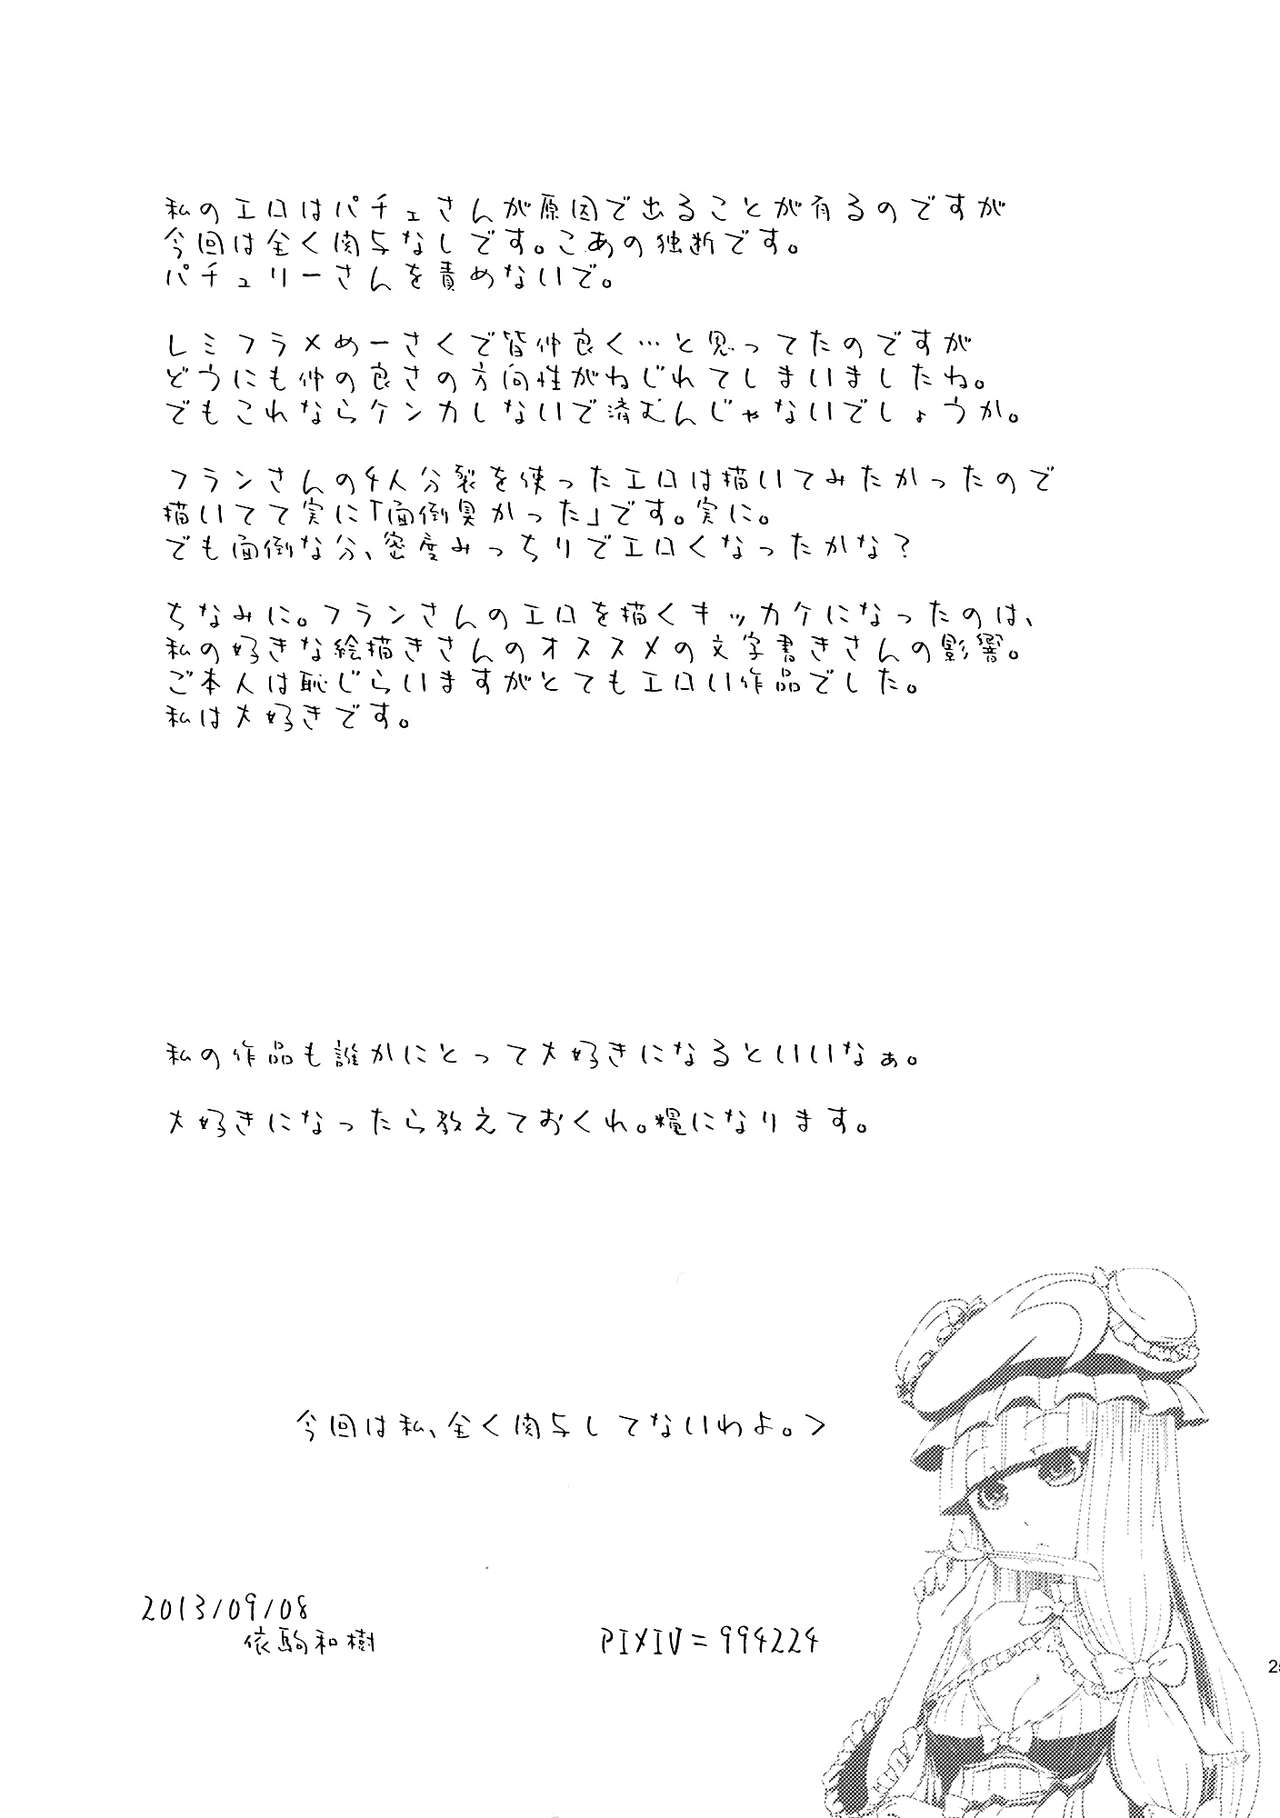 私のエロはパチェさんが原因で出ることが有るのですが
今回は全く関与なしです。こあの独断です。
パチュリーさんを責めないで。
レミフラメめーさくで皆仲良く…と思ってたのですが
どうにも仲の良さの方向性がねじれてしまいましたね。
でもこれならケンカしないで済むんじゃないでしょうか。
フランさんの4人分裂を使ったエロは描いてみたかったので
描いてて実に「面倒臭かった」です。実に。
でも面倒な分、密度みっちりでエロくなったかな?
ちなみに。フランさんのエロを描くキッカケになったのは、
私の好きな絵描きさんのオススメの文字書きさんの影響。
ご本人は恥じらいますがとてもエロい作品でした。
私は大好きです。
私の作品も誰かにとって大好きになるといいなぁ。
大好きになったら教えておくれ。糧になります。
今回は私、全く関与してないわよ。>
2013/09/08
依駒和樹
PIXIV=994224
25